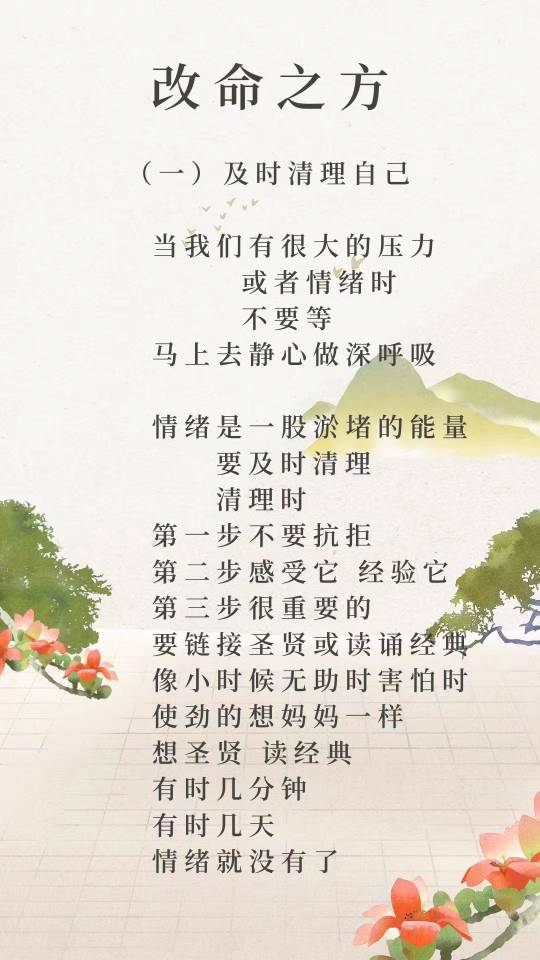 改命之方
（一）及时清理自己
当我们有很大的压力
或者情绪时
不要等
马上去静心做深呼吸
情绪是一股淤堵的能量
要及时清理
清理时
第一步不要抗拒
第二步感受它 经验它
第三步很重要的
要链接圣贤或读诵经典
像小时候无助时害怕时
使劲的想妈妈一样
想圣贤 读经典
有时几分钟
有时几天
情绪就没有了